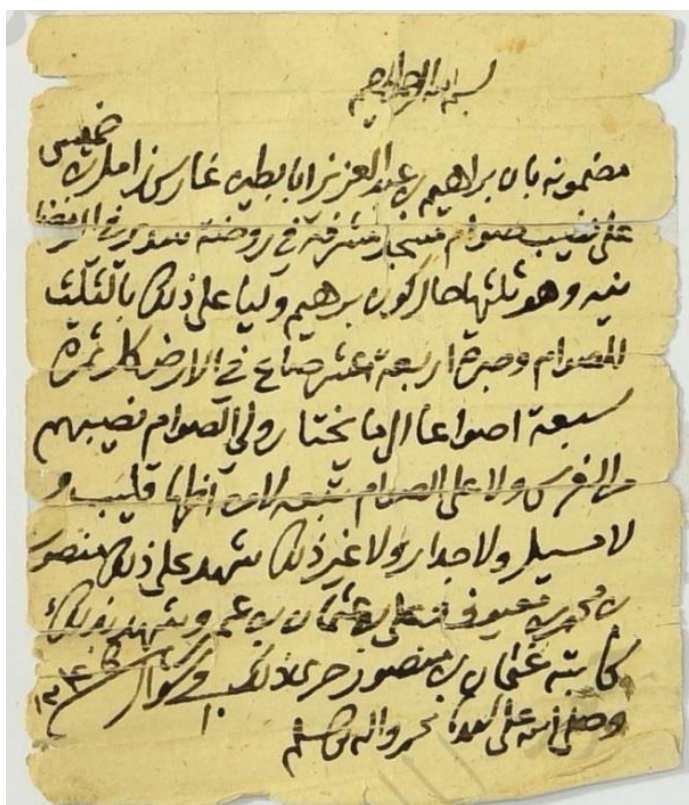 بسم الله الرحمن الرحيم
مضمونه بان براهيم بن عبد العزيز ابابطين غارس زامل بن خميس
على نصيب صوام في روضة سدير في
وهو ثلثها حال كون برهيم وليا على ذلك بالثلث
للصوام وصبرة اربعة عشر صاع في الارض كل ثمرة
سبعة اصواعا الى ما يختار ولي الصوام نصيبهم
من الغرس ولا على الصوام تبعة لا من قليب و
لا مسيل ولا جدار ولا غير ذلك شهد على ذلك منصور
بن محمد بن وعلي بن عثمان بن عمر وشهد بذلك
كاتبه عثمان بن منصور جرى ذلك في شوال
وصلى الله على محمد واله وسلم